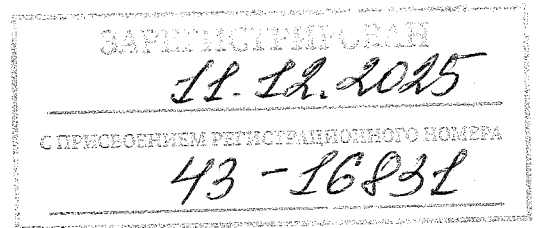 ЗАРЕГИСТРИРОВАН
11.12.2025
С ПРИСВОЕНИЕМ РЕГИСТРАЦИОННОГО НОМЕРА
43-16831